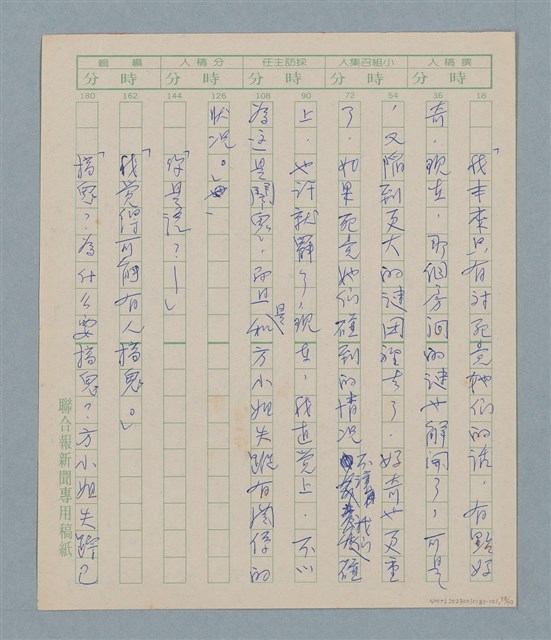 撰稿人
小組召集人
採訪主任
分稿人
編輯
時 分
時 分
時 分
時 分
時 分
18 36 54 72 90 108 126 144 162 180
「我本來只有她们的話，有點好
奇．現在，那個房间的謎也解開了，可是
，又陷到更大的謎团裡去了．好奇也更重
了．如果她们碰到的情况不讓我们碰
上．也許就算了，現在，我直觉上．不以
為這是鬧鬼，而且是和方小姐失蹤有関係的
状况。」
「你是說？——」
「我觉得可能有人搞鬼。」
「搞鬼？為什么要搞鬼？方小姐失蹤已
聯合報新聞專用稿紙